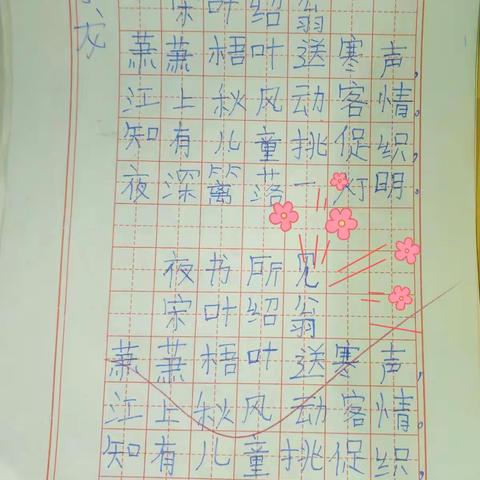 宋叶绍翁
萧萧梧叶送寒声，
江上秋风动客情。
知有儿童挑促织，
夜深篱落一灯明。
夜书所见
宋叶绍翁
萧萧梧叶送寒声，
江上秋风动客情。
知有儿童挑促织，